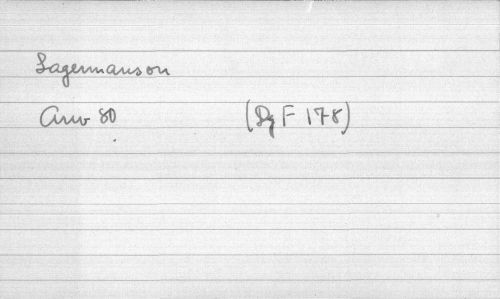 Lagermanson
Arw 80 (Dg F 178)